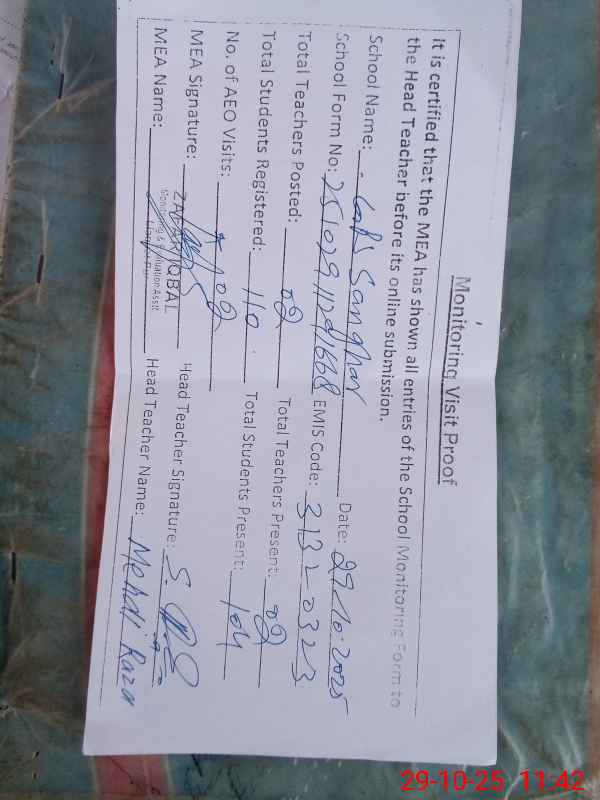 Monitoring Visit Proof
it is certified that the MEA has shown all entries of the School Monitoring Form to
the Head Teacher before its online submission.
School Name: GPS Sanghar Date: 29.10.2025
School Form No: EMIS Code: 31320323
Total Teachers Posted: 02 Total Teachers Present: 02
Total Students Registered: 110 Total Students Present: 104
No. of AEO Visits: 02
MEA Signature: Head Teacher Signature:
ZAFAR IQBAL
Monitoring & Evaluation Asstt
MEA Name: Head Teacher Name: Mehdi Raza
29-10-25 11:42